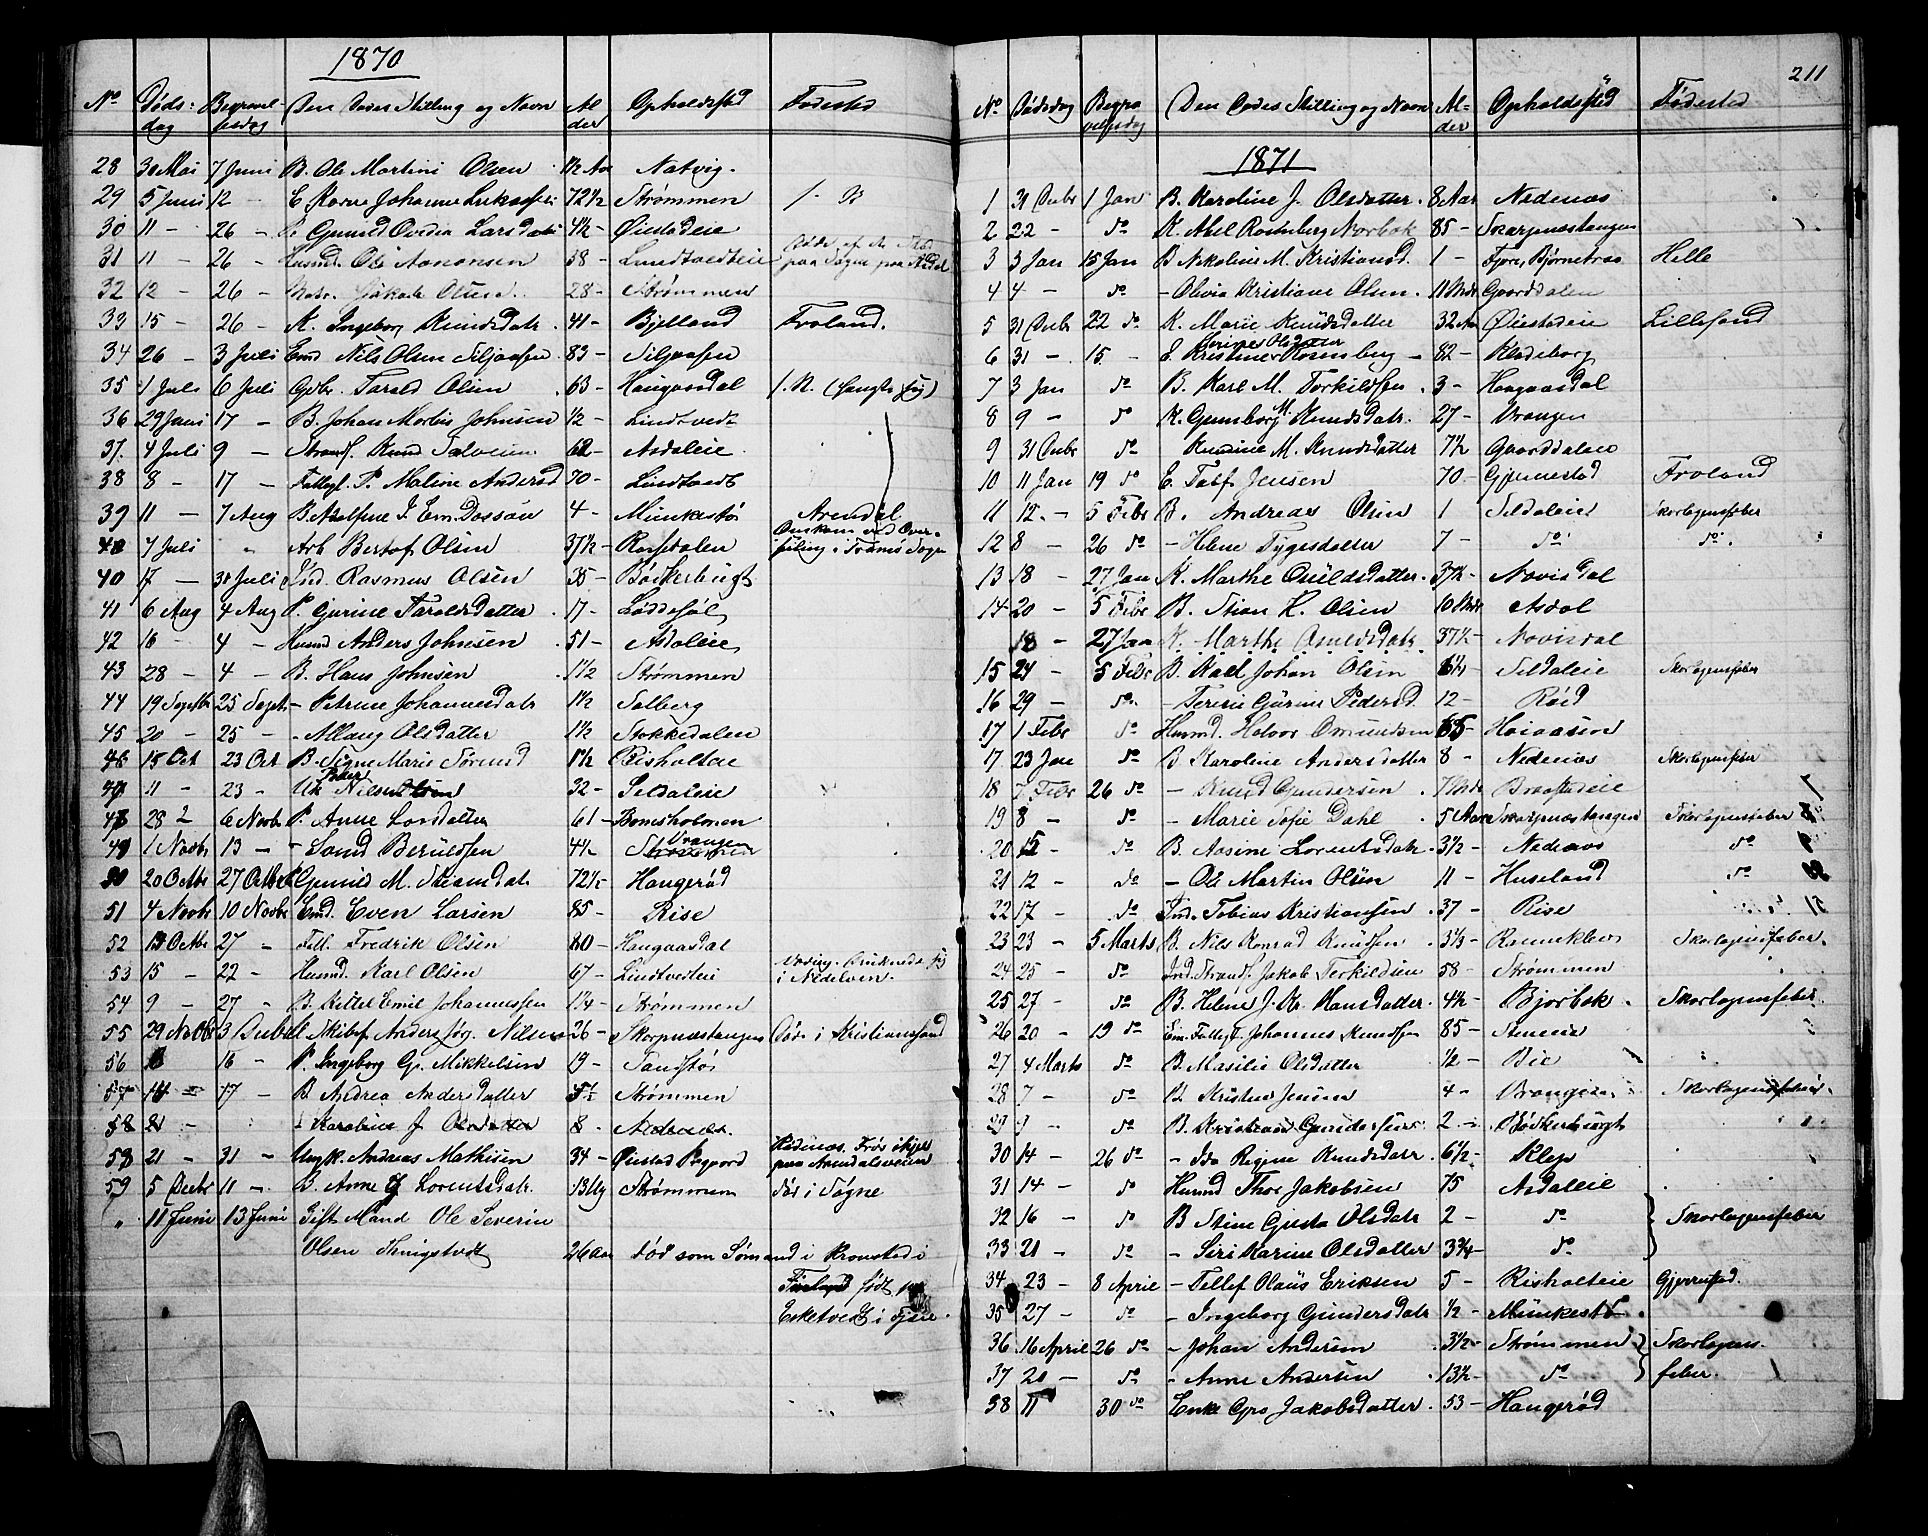 1870
No Døds: dag Begravel- sesdag Den Dødes Stilling og Navn Al der Opholdssted Fødested
28 30 Mai 7 Juni B. Ole Martini Olsen 1/2 Aar Natvig.
29 5 Juni 12 - E. Karen Johanne 72 1/2 Strømmen
30 11 - 26 - Gunild Larsdatr 4 1/2 Øiestadeie
31 11 - 26 - Husmd. Ole Aanonsen 38 - Lindtvedteie
32 12 - 26 - Jakob Olsen 28 - Strømmen
33 15 - 26 - K. Ingeborg Knudsdatr. 41 - Bjelland Froland.
34 26 - 3 Juli Emd Nils Olsen Siljaasen 83 - Siljaasen
35 1 Juli 6 Juli Gbr. Tarald Olsen 63 - Haugaasdal
36 29 Juni 17 - B. Johan Johnsen 1/2 - Lindtvedt
37. 4 Juli 9 - Knud 62 - Asdaleie
38 8 - 17 - Fattigl. P. Malene Andersd 70 - Lindtvedt
39 11 - 7 Aug B. 4 - Munkestø Arendal
40 7 Juli " Arb Bertof Olsen 37 1/2 - Rossedalen Omkom ved
40 17 - 31 Juli Ind. Rasmus Olsen 35 - Bödkerbugt
41 6 Aug 4 Aug P. Gurine Taraldsdatter 17 - Løddesøl
42 16 - 4 - Husmd Anders Johnsen 51 - Asdaleie
43 28 - 4 - B. Hans Johnsen 1 1/2 Strømmen
44 19 Septbr 25 Septr - Petrine Johannesdatr 1 1/2 Solberg
45 20 - 25 - - Aslaug Olsdatter 1 1/2 Stokkedalen
46 15 Oct 23 Oct B. Signe Marie 1 1/2 Risholteie
11 - 23 - Peder 32 - Seldaleie
28 - 6 Novbr P. Anne Larsdatter 61 - Bomsholmen
1 Novbr 13 - - Berulfsen 4 1/2 Vrangen
50 20 Octbr 27 Octbr Gunild M. 72 1/2 - Haugerød
51 4 Novbr 10 Novbr Emd. Even Larsen 85 - Rise
52 13 Octbr 27 - Fredrik Olsen 80 - Haugaasdal
53 15 - 22 - Husmd. Karl Olsen 67 - Lindtvedteie i Nidelven.
54 9 - 27 - B. Kittel Emil Johannessen 1 1/4 - Strømmen
55 29 Novbr 3 Decbr Anders Jørg. Nilsen 26 - Skarpnæstangen Døde i Kristianssand
56 16 - P. Ingeborg G. Mikkelsen 19 - Sandstø
57 14 - 17 - B. Andrea Andersdatter Strømmen
58 21 - Karoline J Olsdatter 8 - Nedenæs.
58 21 - 31 - Ungk. Andreas Mathisen 34 - Øiestad Prgaard Nedenæs. paa Arendalsveien
59 5 Decbr 11 - B. Anne Lorentsdatr. Strømmen
" 11 Juni 13 Juni Gift Mand Ole Severin
Olsen 26 Aar død som Sømand i Kronstad i
født paa
i Fjære.
211
No Dødsdag Begra velsesdag Den Dødes Stilling og Navn Al- der Opholdssted Fødested
1871
1 31 Decbr 1 Jan B. Karoline J. Olsdatter. 8 Aar Nedenæs
2 22 - do K. Abel Rosenberg Norbok 85 - Skarpnæstangen
3 3 Jan 15 Jan B Nikoline M. Kristiansd. 1 - Fjære, Bjørnebraa Helle
4 4 - do - Olivia Kristiane Olsen. 11 Mdr Gaarddalen
5 31 Decbr 22 do K. Marie Knudsdatter 32 Aar Øiestadeie Lillesand
6 31 - 15 - E. Kristine Rosenberg 82 - Klodeborg
7 3 Jan do B. Karl M. Torkildsen 3 - Haugaasdal
8 9 - do K. Gunborg M. Knudsdatr. 27 - Vrangen
9 31 Decbr do Knudine M. Knudsdatter 7 1/2 Gaarddalen
10 11 Jan 19 do E. Jensen 70 - Gjennestad Froland
11 12 - 5 Febr B. Andreas Olsen 1 Seldaleie Skarlagensfeber
12 8 - 26 do - Helene Tygesdatter 7 - do do.
13 18 - 27 Jan K. Marthe 37 1/2 - Nævisdal
14 20 - 5 Febr B. Stian H. Olsen 10 Mdr Asdal
18 - 27 Jan K. Marthe 37 1/2 - Nævisdal
15 24 - 5 Febr B. Karl Johan Olsen Seldaleie Skarlagensfeber
16 29 - do. - Gurine Pedersd 12 - Röd
17 1 Febr do Husmd. Halvor Omundsen 65 -
17 23 Jan do B Karoline Andersdatter 8 - Nedenæs Skarlagensfeber
18 7 Febr 26 do - Knud Gundersen 7 Mdr Braastadeie
19 8 - do - Marie Sofie Dahl 5 Aar Skarpnæstangen Skarlagensfeber
20 15 - do B. Aasine Lorentsdatr 3 1/2 - Nedenæs do
21 12 - do - Ole Martin Olsen 11 - Huseland do
22 17 - do Ind. Tobias Kristiansen 37 - Rise
23 23 - 5 Marts B. Nils Konrad Knudsen 3 1/3 - Rannekleiv Skarlagensfeber.
24 25 - do Ind. Strands. Jakob Terkildsen 58 - Strømmen
25 27 - do B. Helene J. Kr. Hansdatter. 4 1/2 - Bjorbæk Skarlagensfeber
26 20 - 19 do Em. Fattigl. Johannes Knudsen 85 -
27 4 Marts do B. Masilie Olsdatter 1/2 - Bie
28 7 - do B. Kristine Jensen 4 - Vrangen Skarlagensfeber.
29 9 - do B. Kristian Gundersen 2 - Bödkerbugt
30 14 - 26 do - Ida Regine Knudsdatr. 6 1/2 - Klep
31 14 - do Husmd Thor Jakobsen 75 Asdaleie
32 16 - do B Stine Gusta Olsdatr 2 - do Skarlagensfeber
33 21 - do - Siri Karine Olsdatter 3 3/4 - do
34 23 - 8 April - Tellef Olaus Eriksen 5 - Risholteie Gjerrestad.
35 27 - do - Ingeborg Gundersdatr 1/2 - Munkestø
36 16 April 26 do - Johan Andersen 3 1/2 - Strømmen Skarlagens-
37 20 - do - Anne Andersen 13 1/2 - do feber.
38 11 30 do Enke Jakobsdatter 53 - Haugerød